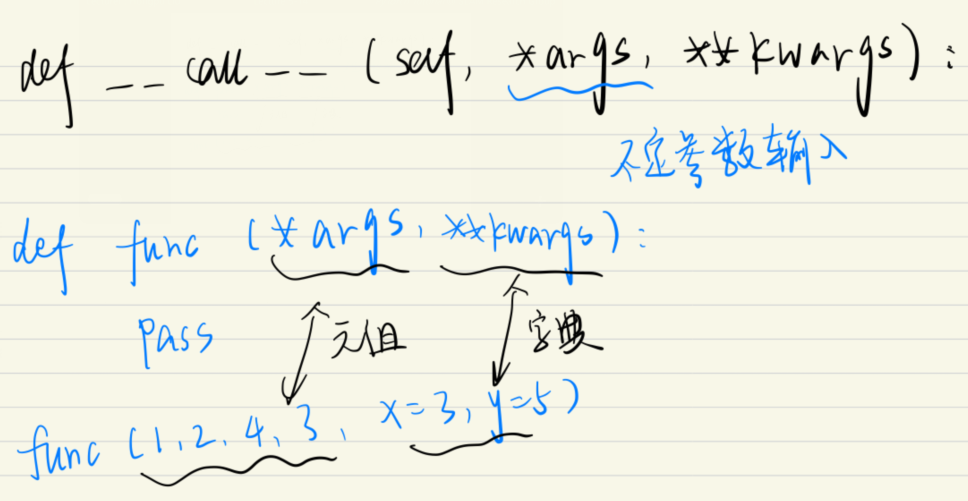 def __call__(self, *args, **kwargs):
不定参数输入
def func (*args, **kwargs):
pass 元组 字典
func (1, 2, 4, 3, x=3, y=5)